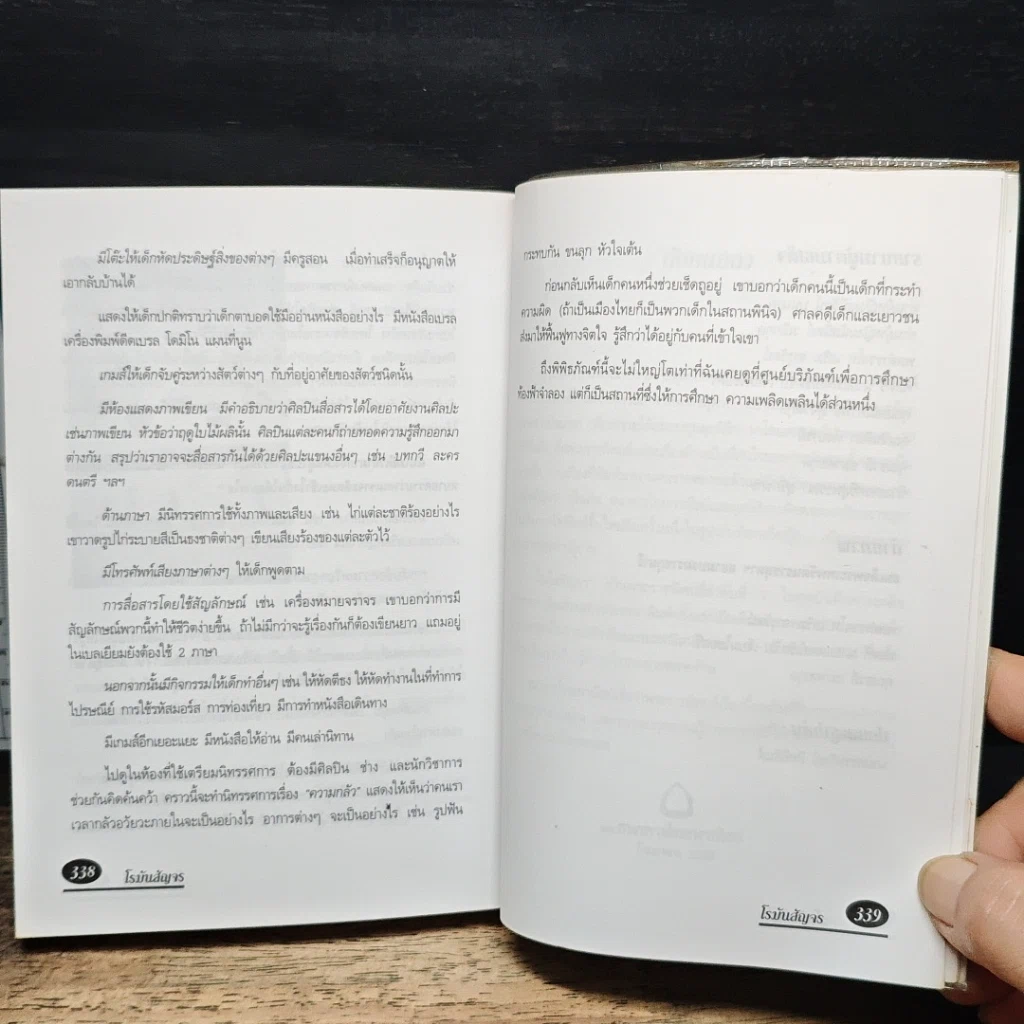 มีโต๊ะให้เด็กหัดประดิษฐ์สิ่งของต่างๆ มีครูสอน เมื่อทำเสร็จก็อนุญาตให้
เอากลับบ้านได้
แสดงให้เด็กปกติทราบว่าเด็กตาบอดใช้มืออ่านหนังสืออย่างไร มีหนังสือเบรล
เครื่องพิมพ์ดีดเบรล โดมิโน แผนที่นูน
เกมส์ให้เด็กจับคู่ระหว่างสัตว์ต่างๆ กับที่อยู่อาศัยของสัตว์ชนิดนั้น
มีห้องแสดงภาพเขียน มีคำอธิบายว่าศิลปินสื่อสารได้โดยอาศัยงานศิลปะ
เช่นภาพเขียน หัวข้อว่าฤดูใบไม้ผลินั้น ศิลปินแต่ละคนก็ถ่ายทอดความรู้สึกออกมา
ต่างกัน สรุปว่าเราอาจจะสื่อสารกันได้ด้วยศิลปะแขนงอื่นๆ เช่น บทกวี ละคร
ดนตรี ฯลฯ
ด้านภาษา มีนิทรรศการใช้ทั้งภาพและเสียง เช่น ไก่แต่ละชาติร้องอย่างไร
เขาวาดรูปไก่ระบายสีเป็นธงชาติต่างๆ เขียนเสียงร้องของแต่ละตัวไว้
มีโทรศัพท์เสียงภาษาต่างๆ ให้เด็กพูดตาม
การสื่อสารโดยใช้สัญลักษณ์ เช่น เครื่องหมายจราจร เขาบอกว่าการมี
สัญลักษณ์พวกนี้ทำให้ชีวิตง่ายขึ้น ถ้าไม่มีกว่าจะรู้เรื่องกันก็ต้องเขียนยาว แถมอยู่
ในเบลเยียมยังต้องใช้ 2 ภาษา
นอกจากนั้นมีกิจกรรมให้เด็กทำอื่นๆ เช่น ให้หัดตีธง ให้หัดทำงานในที่ทำการ
ไปรษณีย์ การใช้รหัสมอร์ส การท่องเที่ยว มีการทำหนังสือเดินทาง
มีเกมส์อีกเยอะแยะ มีหนังสือให้อ่าน มีคนเล่านิทาน
ไปดูในห้องที่ใช้เตรียมนิทรรศการ ต้องมีศิลปิน ช่าง และนักวิชาการ
ช่วยกันคิดค้นคว้า คราวนี้จะทำนิทรรศการเรื่อง "ความกลัว" แสดงให้เห็นว่าคนเรา
เวลากลัวอวัยวะภายในจะเป็นอย่างไร อาการต่างๆ จะเป็นอย่างไร เช่น รูปฟัน
338 โรมันสัญจร
กระทบกัน ขนลุก หัวใจเต้น
ก่อนกลับเห็นเด็กคนหนึ่งช่วยเช็ดถูอยู่ เขาบอกว่าเด็กคนนี้เป็นเด็กที่กระทำ
ความผิด (ถ้าเป็นเมืองไทยก็เป็นพวกเด็กในสถานพินิจ) ศาลคดีเด็กและเยาวชน
ส่งมาให้ฟื้นฟูทางจิตใจ รู้สึกว่าได้อยู่กับคนที่เข้าใจเขา
ถึงพิพิธภัณฑ์นี้จะไม่ใหญ่โตเท่าที่ฉันเคยดูที่ศูนย์บริภัณฑ์เพื่อการศึกษา
ท้องฟ้าจำลอง แต่ก็เป็นสถานที่ซึ่งให้การศึกษา ความเพลิดเพลินได้ส่วนหนึ่ง
โรมันสัญจร 339